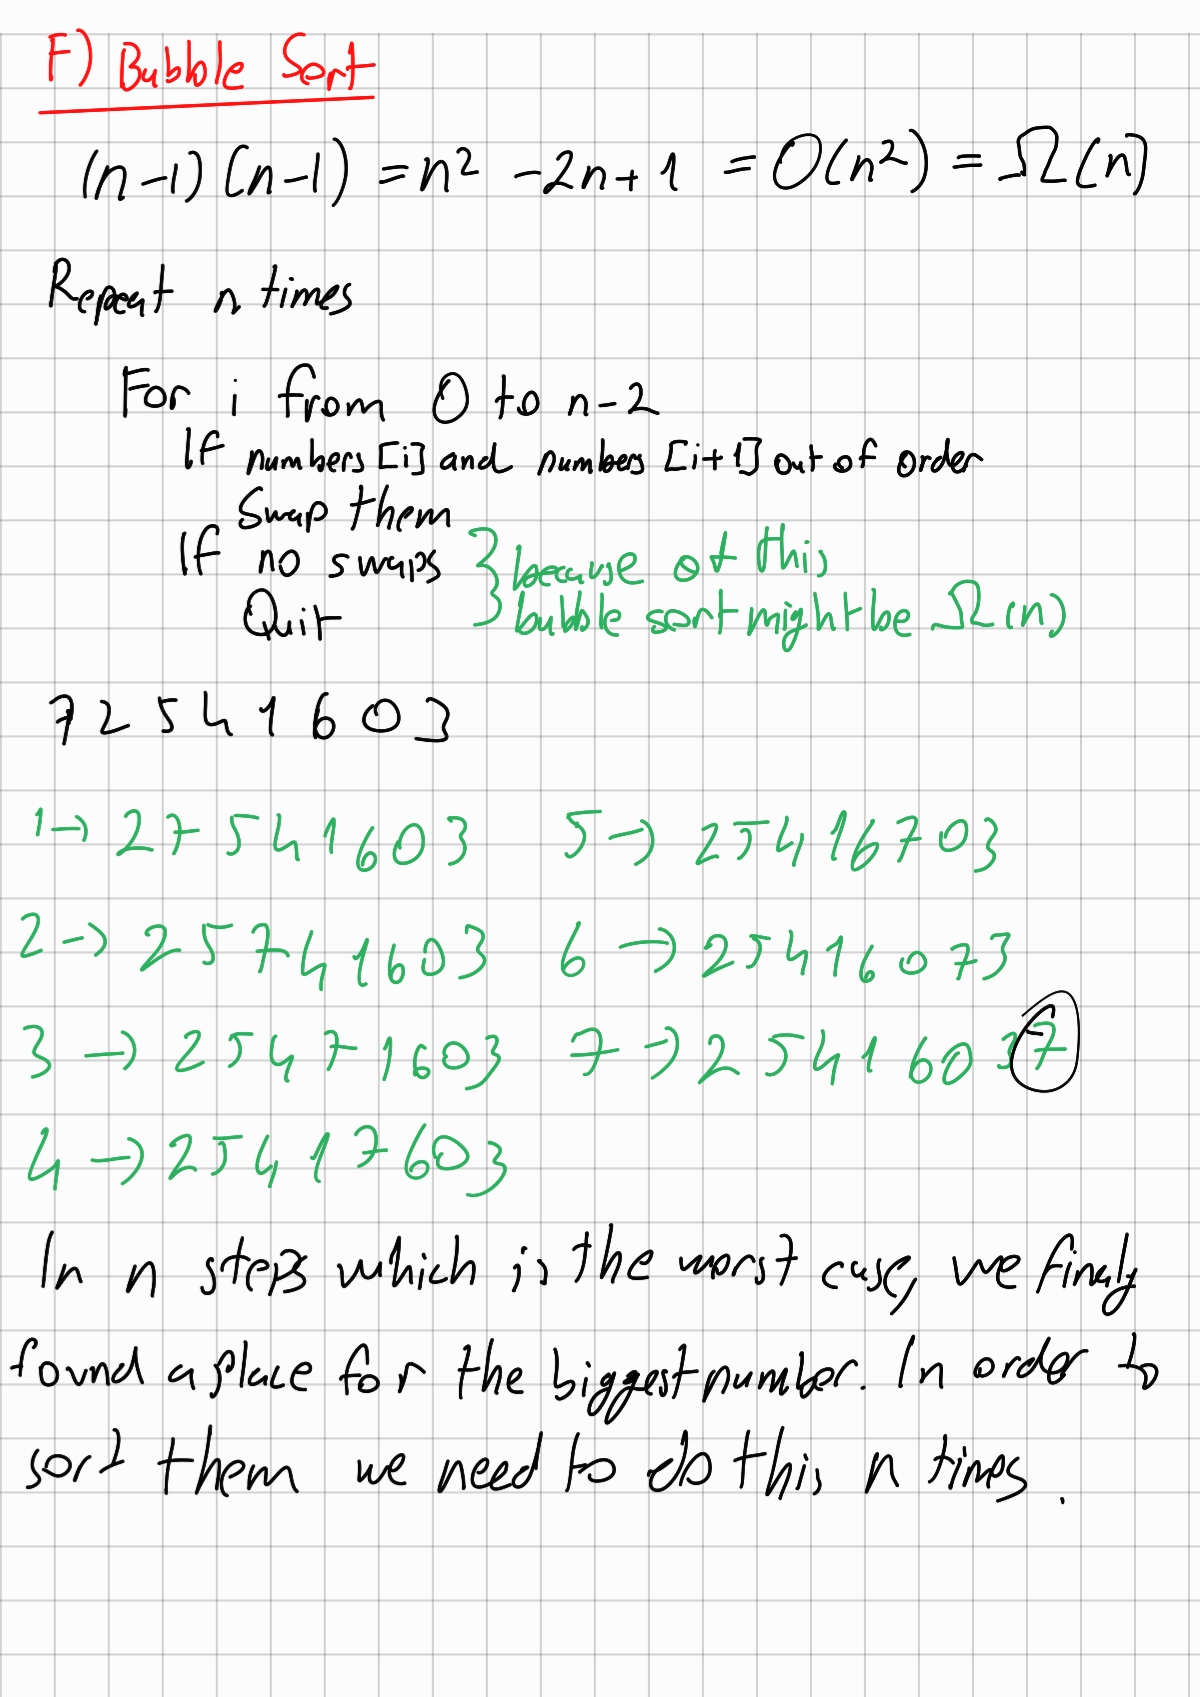 F) Bubble Sort
(n-1)(n-1) = n² -2n+1 = O(n²) = Ω(n)
Repeat n times
For i from 0 to n-2
If numbers [i] and numbers [i+1] out of order
Swap them
If no swaps } because of this
Quit } bubble sort might be Ω(n)
7 2 5 4 1 6 0 3
1→ 2 7 5 4 1 6 0 3 5→ 2 5 4 1 6 7 0 3
2→ 2 5 7 4 1 6 0 3 6→ 2 5 4 1 6 0 7 3
3→ 2 5 4 7 1 6 0 3 7→ 2 5 4 1 6 0 3 7
4→ 2 5 4 1 7 6 0 3
In n steps which is the worst case, we finaly
found a place for the biggest number. In order to
sort them we need to do this n times.